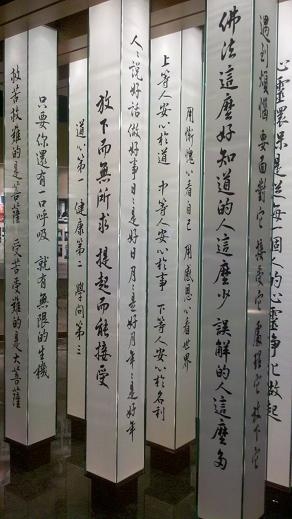 心靈環保是從每一個人的心靈淨化做起
遇到煩惱要面對它 接受它 處理它 放下它
佛法這麼好知道的人這麼少 誤解的人這麼多
用慚愧心看自己 用感恩心看世界
上等人安心於道 中等人安心於事 下等人安心於名利
人人說好話做好事日日是好日月月是好月年年是好年
放下而無所求 提起而能接受
道心第一 健康第二 學問第三
只要你還有一口呼吸 就有無限的生機
救苦救難的是菩薩 受苦受難的是大菩薩